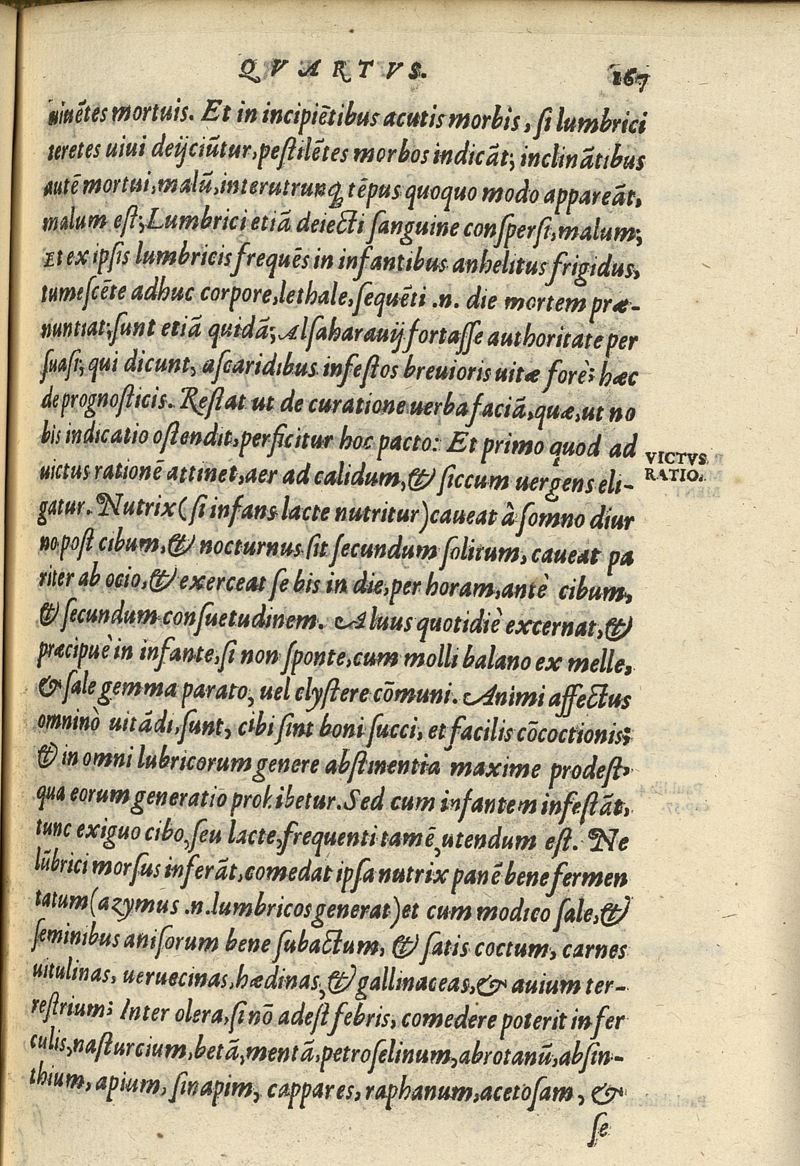 QVARTVS. 167
uiuẽtes mortuis. Et in incipiẽtibus acutis morbis, si lumbrici
teretes uiui deijciũtur, pestilẽtes morbos indicãt; inclinãtibus
autẽ mortui, malũ, interutrunq; tẽpus quoquo modo appareãt,
malum est; Lumbrici etiã deiecti sanguine conspersi, malum;
Et ex ipsis lumbricis frequẽs in infantibus anhelitus frigidus,
tumescẽte adhuc corpore, lethale, sequẽti .n. die mortem præ-
nuntiat; sunt etiã quidã; Alsaharauij fortasse authoritate per
suasi; qui dicunt, ascaridibus infestos breuioris uitæ forè: hæc
de prognosticis. Restat ut de curatione uerba faciã, quæ, ut no
bis indicatio ostendit, perficitur hoc pacto: Et primo quod ad
VICTVS
RATIO.
uictus rationẽ attinet, aer ad calidum, & siccum uergens eli-
gatur. Nutrix (si infans lacte nutritur) caueat à somno diur
no post cibum, & nocturnus sit secundum solitum, caueat pa
riter ab ocio, & exerceat se bis in die, per horam, antè cibum,
& secundum consuetudinem. Aluus quotidiè excernat, &
præcipuè in infante, si non sponte, cum molli balano ex melle,
& sale gemma parato, uel clystere cõmuni. Animi affectus
omninò uitãdi, sunt, cibi sint boni succi, et facilis cõcoctionis;
& in omni lubricorum genere abstinentia maxime prodest,
qua eorum generatio prohibetur. Sed cum infantem infestãt,
tunc exiguo cibo, seu lacte, frequenti tamẽ, utendum est. Ne
lũbrici morsus inferãt, comedat ipsa nutrix panẽ bene fermen
tatum (azymus .n. lumbricos generat) et cum modico sale, &
seminibus anisorum bene subactum, & satis coctum, carnes
uitulinas, ueruecinas, hædinas, & gallinaceas, & auium ter-
restrium: Inter olera, si nõ adest febris, comedere poterit in fer
culis, nasturcium, betã, mentã, petroselinum, abrotanũ, absin-
thium, apium, sinapim, cappares, raphanum, acetosam, &
se